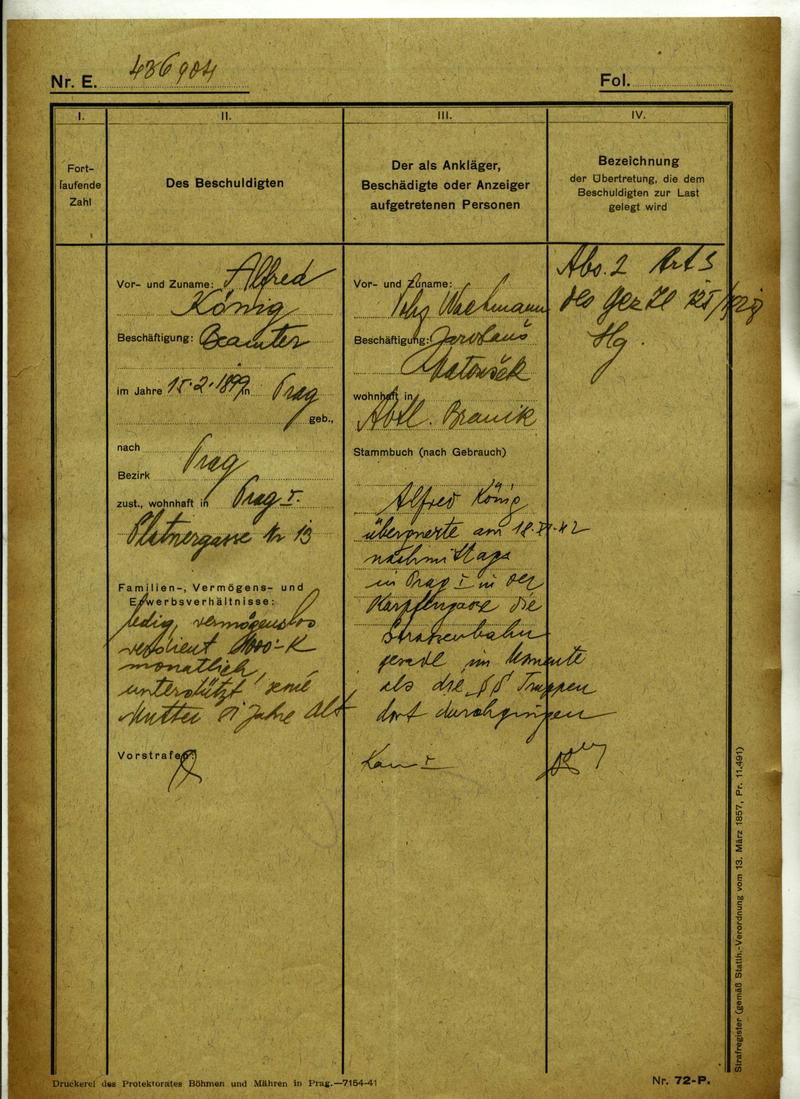 Nr. E. 436904
Fol.
I.
II.
III.
IV.
Fort-
laufende
Zahl
Des Beschuldigten
Der als Ankläger,
Beschädigte oder Anzeiger
aufgetretenen Personen
Bezeichnung
der Übertretung, die dem
Beschuldigten zur Last
gelegt wird
Vor- und Zuname: Alfred
König
Beschäftigung: Beamter
im Jahre 15.2.1899 in Prag
geb.,
nach
Prag
Bezirk
zust., wohnhaft in Prag I.
Platnergasse Nr 13
Familien-, Vermögens- und
Erwerbsverhältnisse:
ledig, vermögenslos
verdient 1000'- K
monatlich,
unterstützt seine
Mutter 81 Jahre alt
Vorstrafen:
Vor- und Zuname:
Wachmann
Beschäftigung: Jaroslaus
Matoušek
wohnhaft in
Abtl. Branik
Stammbuch (nach Gebrauch)
Alfred König
überquerte am 18.XI.42
nachmittags
in Prag I in der
Karpfengasse die
Strassenbahn
gerade im Momente
als die SS Truppen
dort durchgingen
Kom I
Abs. 2 Art 3
des Ges Zl 125/1928
Slg.
Strafregister (gemäß Statth.-Verordnung vom 13. März 1857, Pr. 11.491)
Druckerei des Protektorates Böhmen und Mähren in Prag.—7154-41
Nr. 72-P.